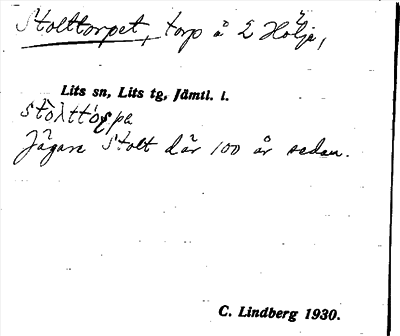 Stolttorpet, torp å 2 Hölje,
Lits sn, Lits tg, Jämtl. l.
Jägare Stolt där 100 år sedan.
C. Lindberg 1930.